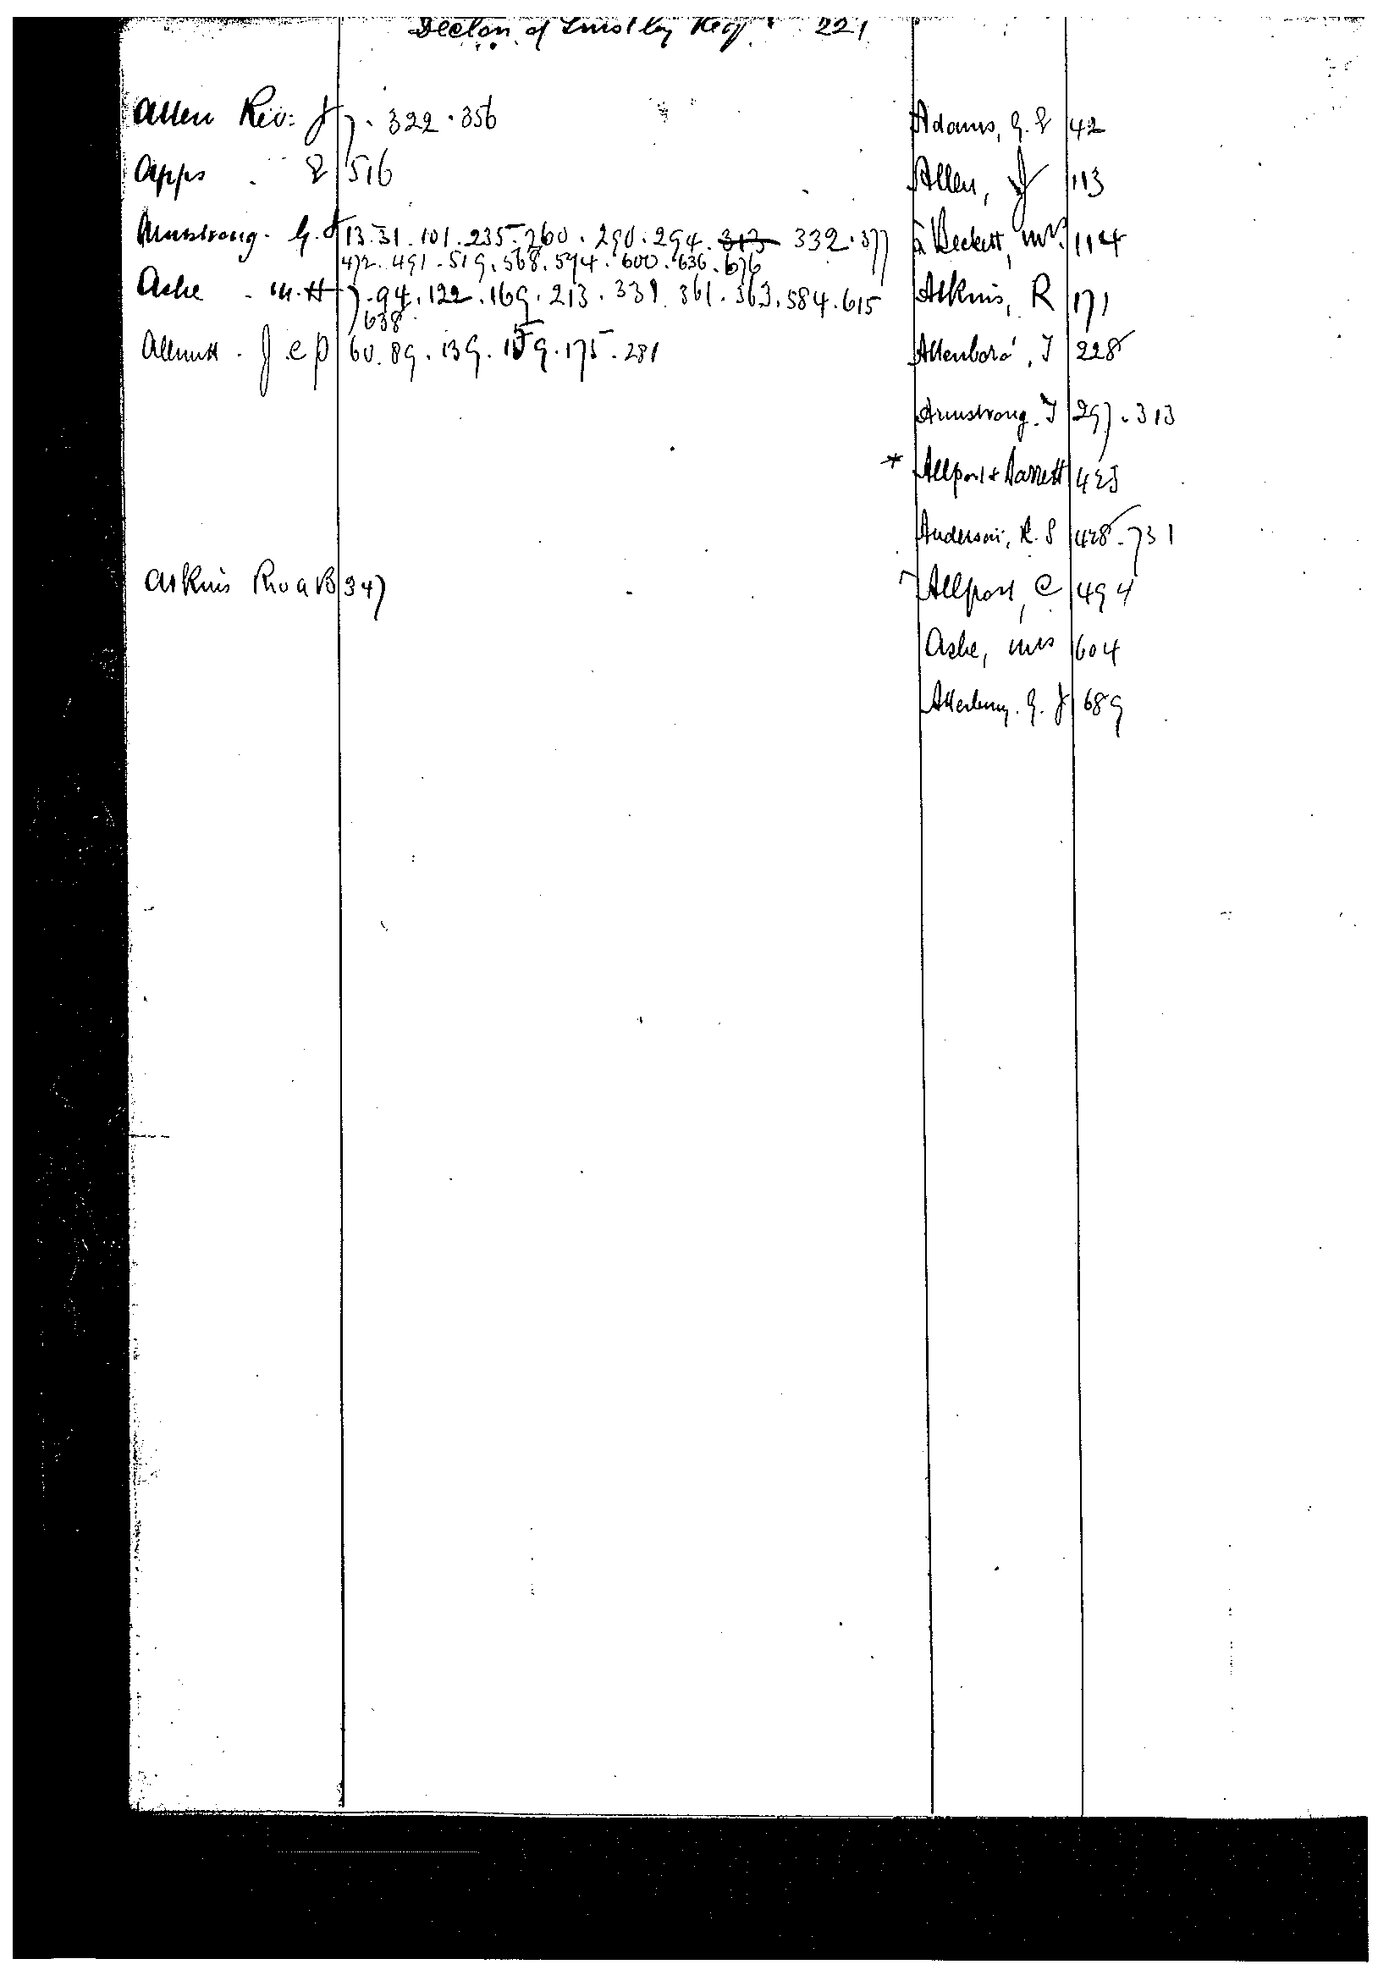 of 221
Allen Rev: J 7 . 322 . 356
Apps . E 516
Armstrong . G. J 13 . 31 . 101 . 235 . 260 . 290 . 294 . 313 332 . 377
472 . 491 . 519 . 568 . 594 . 600 . 636 . 676
Ashe . M. H 7 . 94 . 122 . 169 . 213 . 339 361 . 363 . 584 . 615
638
Allnutt . J C P 60 . 89 . 139 . 159 . 175 . 281
Atkins Rev A B 347
Adams, G. E 42
Allen, J 113
à Beckett, Mr 114
Atkins, R 171
Attenboro', T 228
Armstrong . T 297 . 313
* Allport & Barrett 423
Anderson, R. S 428 . 731
Allport, C 494
Ashe, Mrs 604
Atterbury . G. J 689